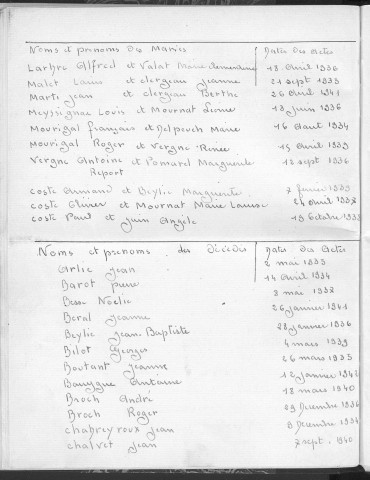 Noms et prenoms des Mariés Dates des Actes
Larbre Alfred et Valat Marie clementine 18 Avril 1936
Malet Louis et clergeau jeanne 21 sept 1933
Marti jean et clergeau Berthe 26 Avril 1941
Meyssignac Louis et Mournat 13 juin 1936
Mourigal français et Delpouch Marie 16 Aout 1934
Mourigal Roger et Vergne Renée 15 Avril 1939
Vergne Antoine et Pomarel Marguerite 12 sept 1936
Report
coste Armand et Beylie Marguerite 7 fevrier 1939
coste Olivier et Mournat Marie Louise 24 Avril
coste Paul et juin Angèle 19 Octobre 1935
Noms et prenoms des Décédés Dates des Actes
Arlie jean 2 mai 1933
Barot pierre 14 Avril 1934
Besse Noëlie 3 mai 1937
Beral jeanne 26 janvier 1941
Beylie jean-Baptiste 28 janvier 1936
Bilot Georges 4 mars 1939
Boutant jeanne 26 mars 1933
Antoine 12 janvier 1942
Broch André 18 mars 1940
Broch Roger 29 Decembre 1936
chabreyroux jean 8 Decembre 1934
chalvet jean 7 sept. 1940